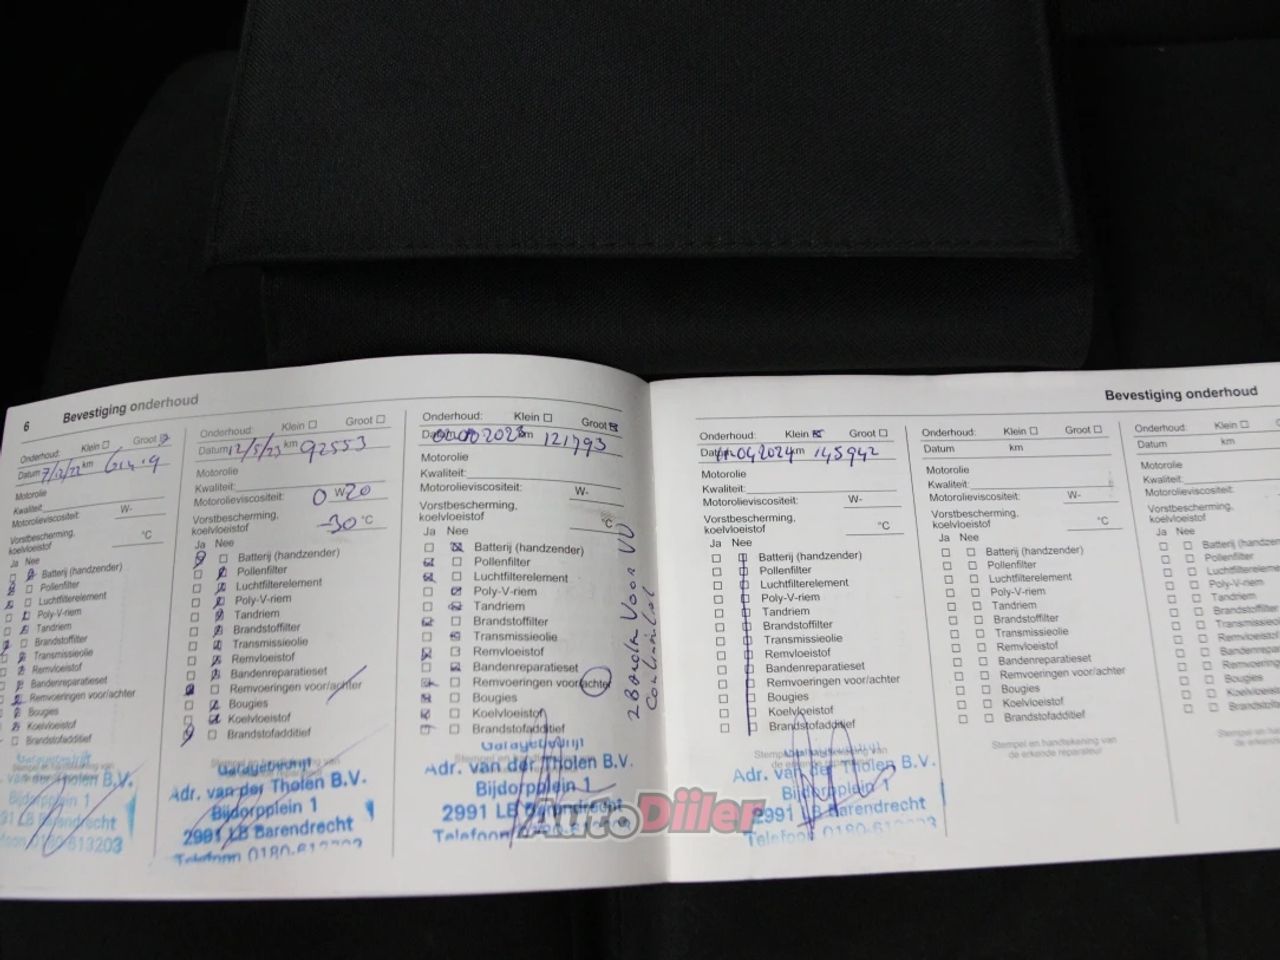 6 Bevestiging onderhoud
Onderhoud: Klein Groot
Datum 7/12/22 km
Motorolie
Kwaliteit:
Motorolieviscositeit: W-
Vorstbescherming,
koelvloeistof °C
Ja Nee
Batterij (handzender)
Pollenfilter
Luchtfilterelement
Poly-V-riem
Tandriem
Brandstoffilter
Transmissieolie
Remvloeistof
Bandenreparatieset
Remvoeringen voor/achter
Bougies
Koelvloeistof
Brandstofadditief
Adr. van der Tholen B.V.
Bijdorpplein 1
2991 LB Barendrecht
Telefoon 0180-613203
Onderhoud: Klein Groot
Datum 12/5/23 km 92553
Motorolie
Kwaliteit:
Motorolieviscositeit: 0 W- 20
Vorstbescherming,
koelvloeistof -30 °C
Ja Nee
Batterij (handzender)
Pollenfilter
Luchtfilterelement
Poly-V-riem
Tandriem
Brandstoffilter
Transmissieolie
Remvloeistof
Bandenreparatieset
Remvoeringen voor/achter
Bougies
Koelvloeistof
Brandstofadditief
Garagebedrijf
Adr. van der Tholen B.V.
Bijdorpplein 1
2991 LB Barendrecht
Telefoon 0180-613203
Onderhoud: Klein Groot
Datum 2023 km 121793
Motorolie
Kwaliteit:
Motorolieviscositeit: W-
Vorstbescherming,
koelvloeistof °C
Ja Nee
Batterij (handzender)
Pollenfilter
Luchtfilterelement
Poly-V-riem
Tandriem
Brandstoffilter
Transmissieolie
Remvloeistof
Bandenreparatieset
Remvoeringen voor/achter
Bougies
Koelvloeistof
Brandstofadditief
2 Banden Voor VV
Continental
Garagebedrijf
Adr. van der Tholen B.V.
Bijdorpplein 1
2991 LB Barendrecht
Telefoon 0180-613203
Bevestiging onderhoud
Onderhoud: Klein Groot
Datum 11-04-2024 km 145942
Motorolie
Kwaliteit:
Motorolieviscositeit: W-
Vorstbescherming,
koelvloeistof °C
Ja Nee
Batterij (handzender)
Pollenfilter
Luchtfilterelement
Poly-V-riem
Tandriem
Brandstoffilter
Transmissieolie
Remvloeistof
Bandenreparatieset
Remvoeringen voor/achter
Bougies
Koelvloeistof
Brandstofadditief
Stempel en handtekening van
de erkende reparateur
Adr. van der Tholen B.V.
Bijdorpplein 1
2991 LB Barendrecht
Telefoon 0180-613203
Onderhoud: Klein Groot
Datum km
Motorolie
Kwaliteit:
Motorolieviscositeit: W-
Vorstbescherming,
koelvloeistof °C
Ja Nee
Batterij (handzender)
Pollenfilter
Luchtfilterelement
Poly-V-riem
Tandriem
Brandstoffilter
Transmissieolie
Remvloeistof
Bandenreparatieset
Remvoeringen voor/achter
Bougies
Koelvloeistof
Brandstofadditief
Stempel en handtekening van
de erkende reparateur
Onderhoud: Klein
Datum km
Motorolie
Kwaliteit:
Motorolieviscositeit:
Vorstbescherming,
koelvloeistof
Ja Nee
Batterij
Pollenfilter
Luchtfilterelement
Poly-V-riem
Tandriem
Brandstoffilter
Remvloeistof
Bougies
AutoDiiler